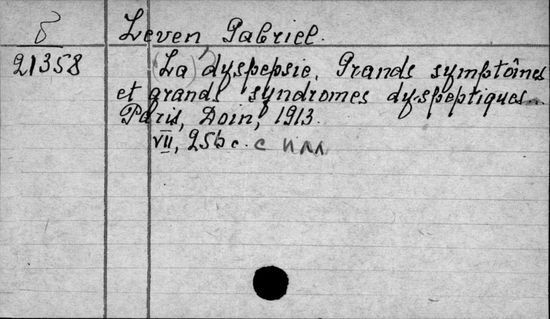 б Leven, Gabriel.
21358 (La) dyspepsie. Grands symptômes
et grands syndromes dyspeptiques...
Paris, Doin, 1913.
VII, 256 с. с илл